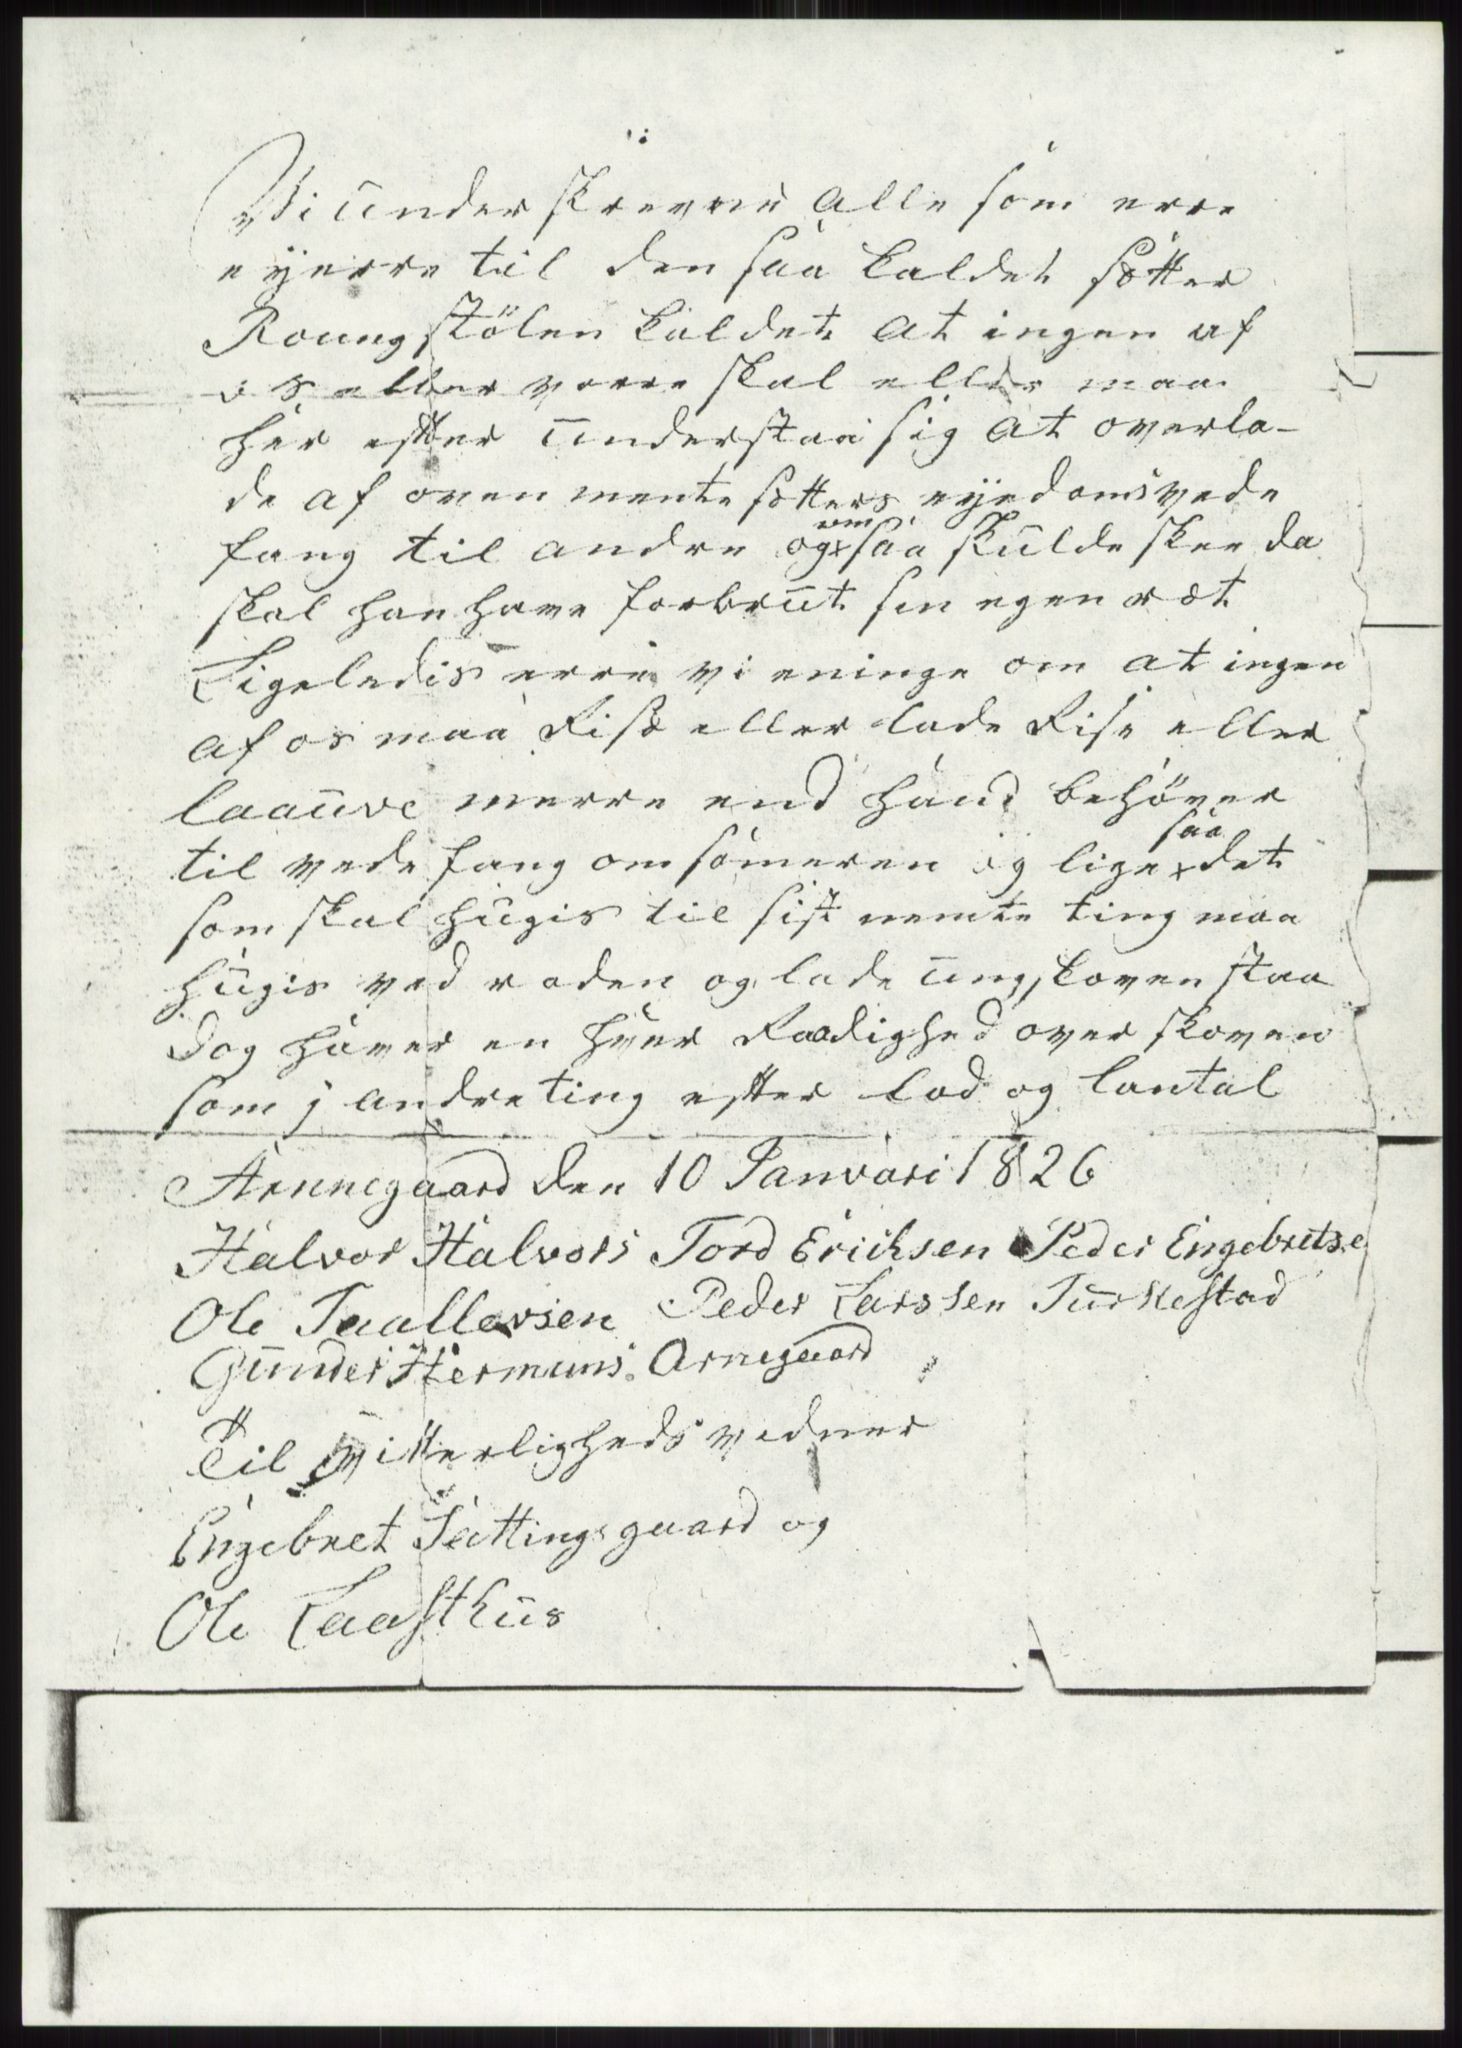 Vi underskrevne alle som erre
eyerre til den saa kaldet sætter
Roungstölen kaldet at ingen af
os eller vorre skal eller maa
her efter understaa sig at overla-
de af oven mente sætters eyedoms vede
fang til andre og om saa skulde skee da
skal han have forbrut sin egen ræt
Ligeledis erre vi eninge om at ingen
af os maa Rise eller lade Rise eller
laauve merre end hand behöver
til vede fang om someren og lige saa det
som skal hugis til sist nemte ting maa
hugis ved roden og lade ungskoven staa
Dog haver en hver Raadighed over skoven
som j andre ting efter lod og lantal
Arnnegaard den 10 Januari 1826
Halvor Halvors Tord Erichsen Peder Engebretse
Ole Taallevsen Peder Larssen Turkestad
Gunder Hermuns. Arnegaard
Til vitterligheds vedner
Engebret Sattingsgaard og
Ole Laasthus